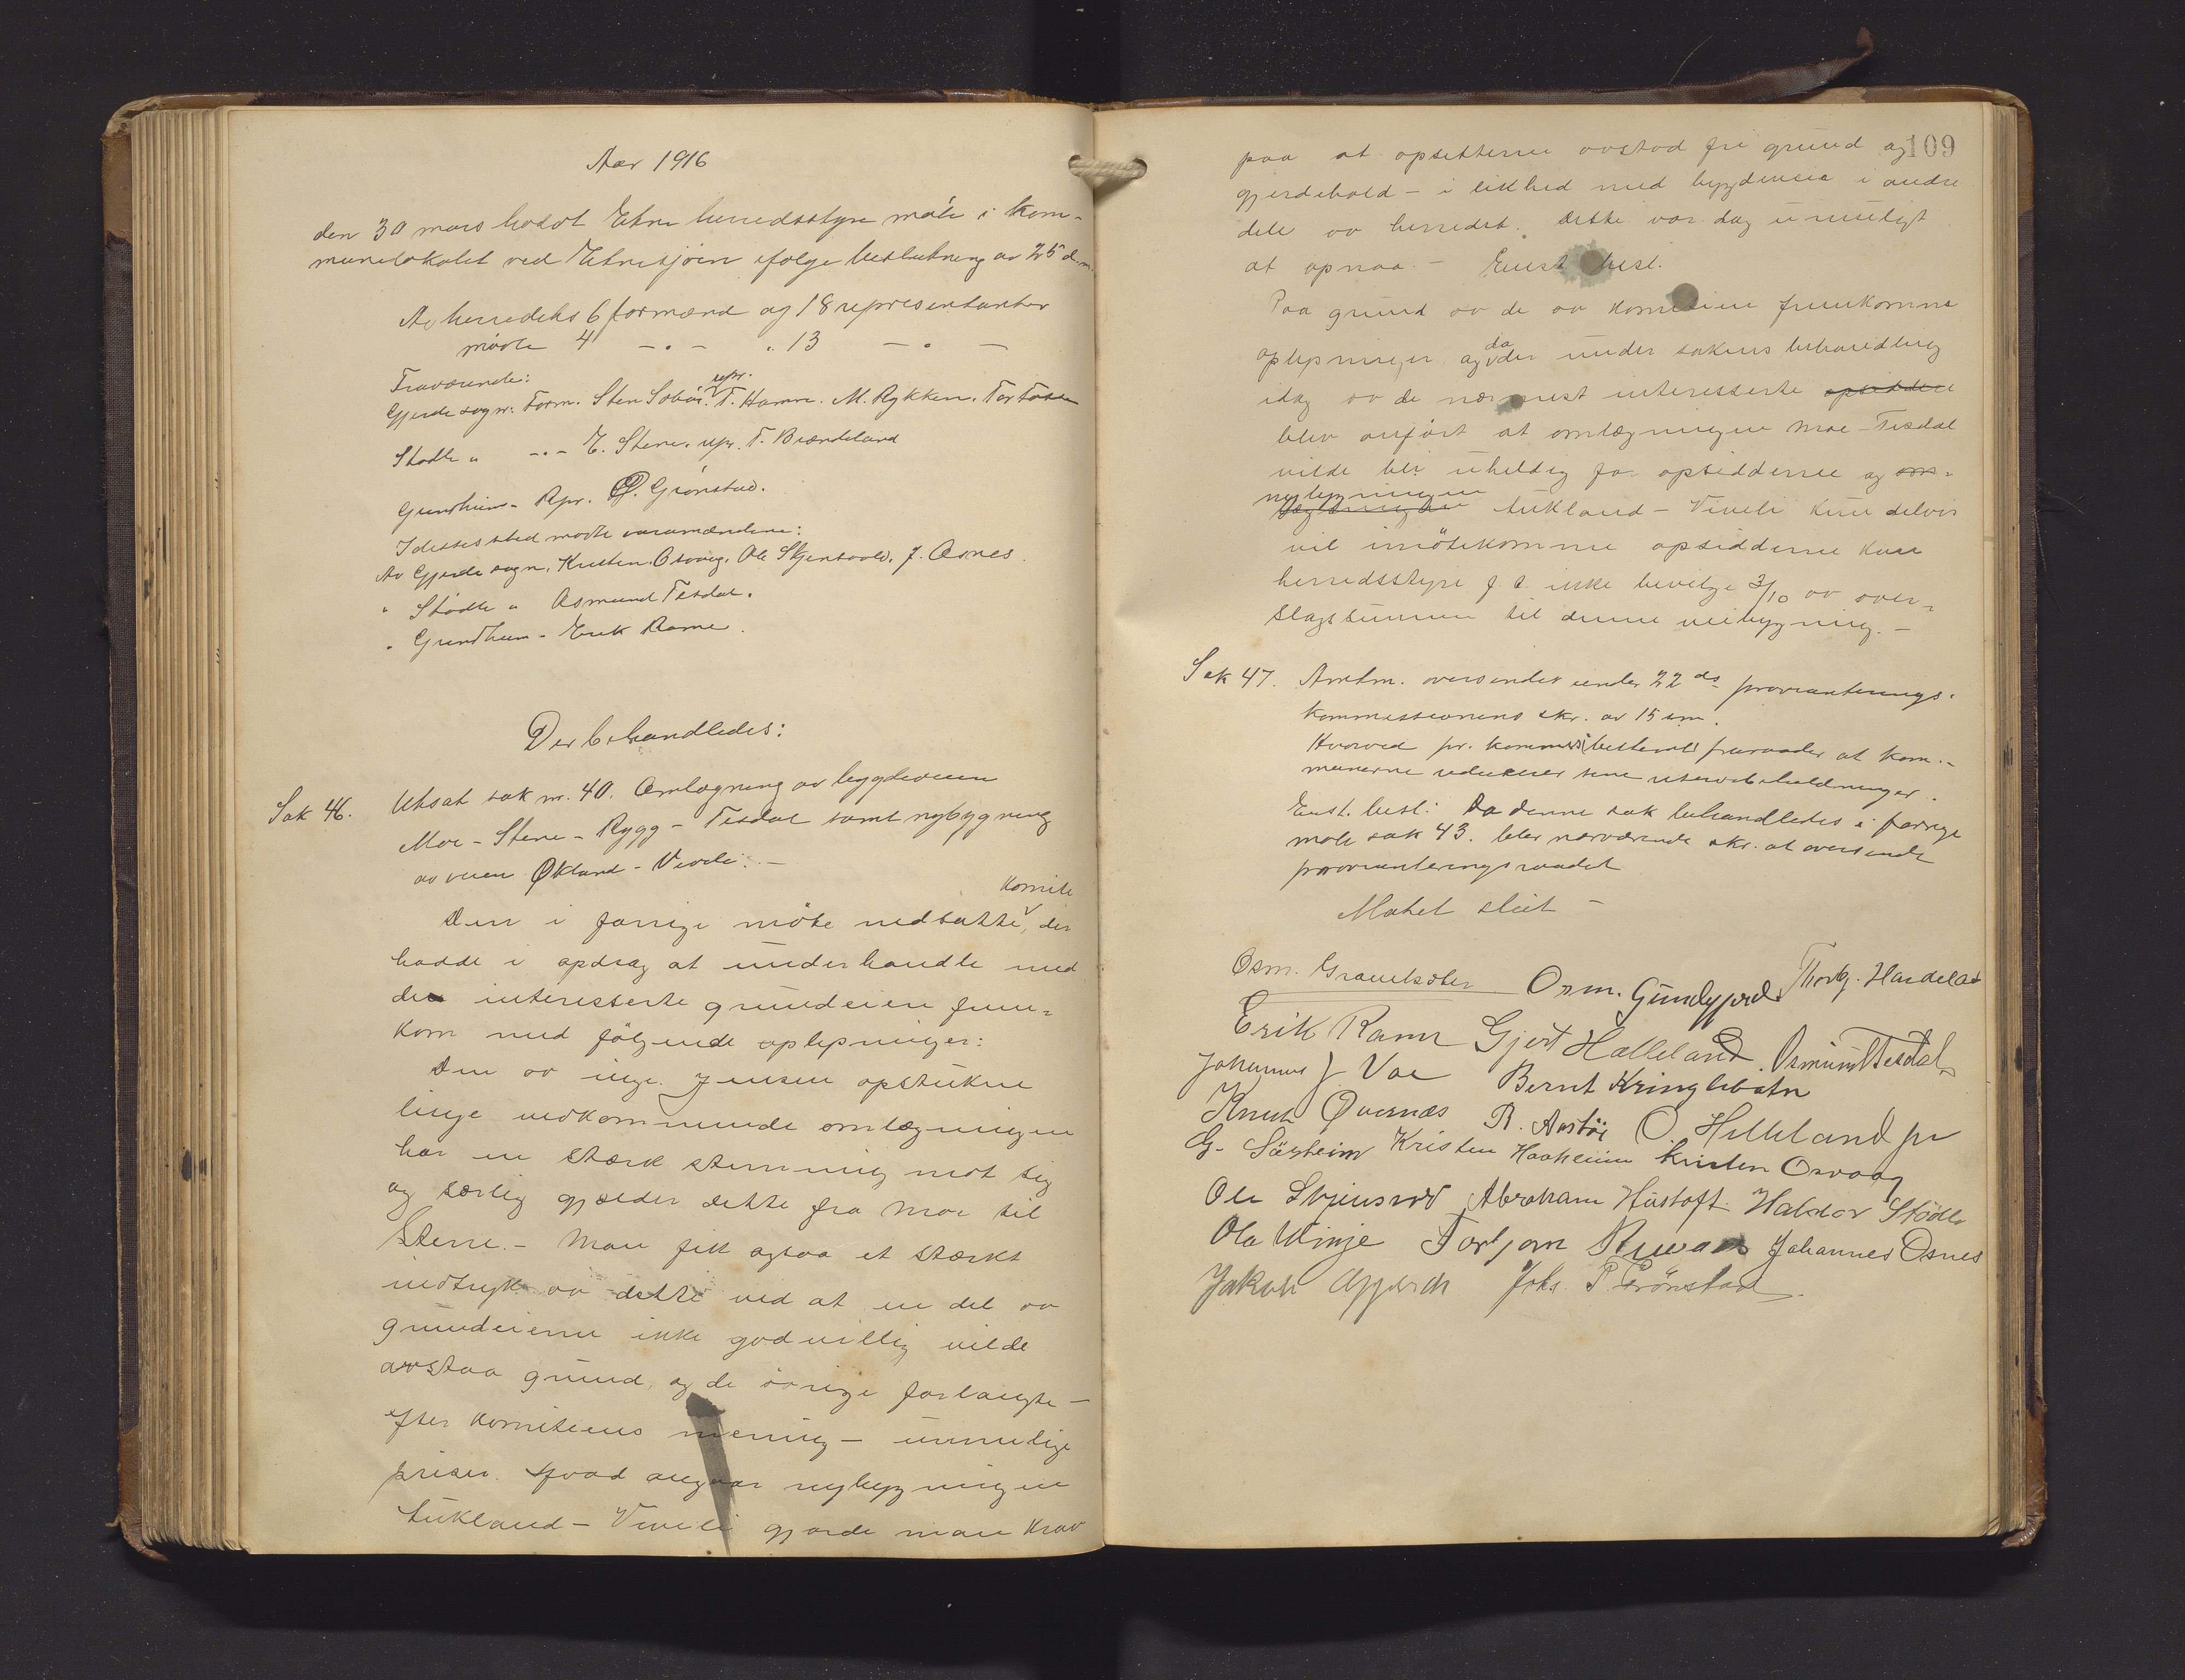 Aar 1916
den 30 mars holdt Etne herredsstyre møte i kom-
munelokalet ved Etnesjøen ifølge beslutning av 25 d.m.
Av herredets 6 formænd og 18 representanter
møtte 4 -"- " 13 - " -
Fraværende:
Gjerde sogn. Form. Sten Sæbøi. repr. T. Hamre. M. Rykken. Tor
Stødle " -"- E. Stene. repr. T. Brændeland
Grindheim - Repr. P. Grønstad.
I dessessted møtte varamændene:
Av Gjerde sogn. Kristen Osvaag. Ole Skjensvold. J. Osnes.
" Stødle " Asmund Tesdal.
" Grindheim - Erik Rame.
Der behandledes:
Sak 46. Utsat sak nr. 40. Omlægning av bygdeveien
Moe - Stene - Rygg - Tesdal samt nybygning
av veien Økland - Viveli. -
komite
Den i forrige møte nedsatte, der
hadde i opdrag at underhandle med
de interesserte grundeiere frem=
kom med følgende oplysninger:
Den av inge. Jensen opstukne
linje vedkommende omlægningen
har en stærk stemning mot sig
og særlig gjælder dette fra Moe til
Stene. - Man fikk ogsaa et stærkt
indtryk av dette ved at en del av
grundeierne ikke godvillig vilde
avstaa grund, og de øvrige forlangte -
efter komiteens mening - urimelige
priser. Hvad angaar nybygningen
Aukland - Viveli gjorde man krav
109
paa at opsitterne avstod fri grund og
gjerdehold - i likhed med bygdeveie i andre
dele av herredet. Dette var dog umuligt
at opnaa. - Enst. besl.
Paa grund av de av komiteen fremkomne
oplysninger og da der under sakens behandling
idag av de nærmest interesserte opsiddere
blev anført at omlægningen Moe - Tesdal
vilde bli uheldig for opsidderne og om=
nybygningen
lægningen Aukland - Viveli kun delvis
vil imøtekomme opsidderne kan
herredsstyre f. t. ikke bevilge 3/10 av over=
slagssummen til denne veibygning. -
Sak 47. Amtm. oversender under 22 ds provianterings-
kommissionens skr. av 15 sm.
Hvorved pr. kommis. bestemt fraraader at kom-
munerne reducerer sine reservebeholdninger.
Enst. besl: Da denne sak behandledes i forrige
møte sak 43. blev nærværende skr. at oversende
provianteringsraadet
Møtet slut -
Osm. Osm. Gundegjerde Thorbj.
Erik Rame Gjert Hålleland. Osmund Tesdal
Johannes J. Vae Bernt Kringlebotn
Knut Øvernæs R. Aastøi O. Helleland jr
G. Sørheim Kristen Haaheim Kristen Osvaag
Ole Skjensvold Abraham Håstoft Halvor Stødle
Ola Vinje Torbjørn Johannes Osnes
Jakob Gjerde Johs. P. Grønstad